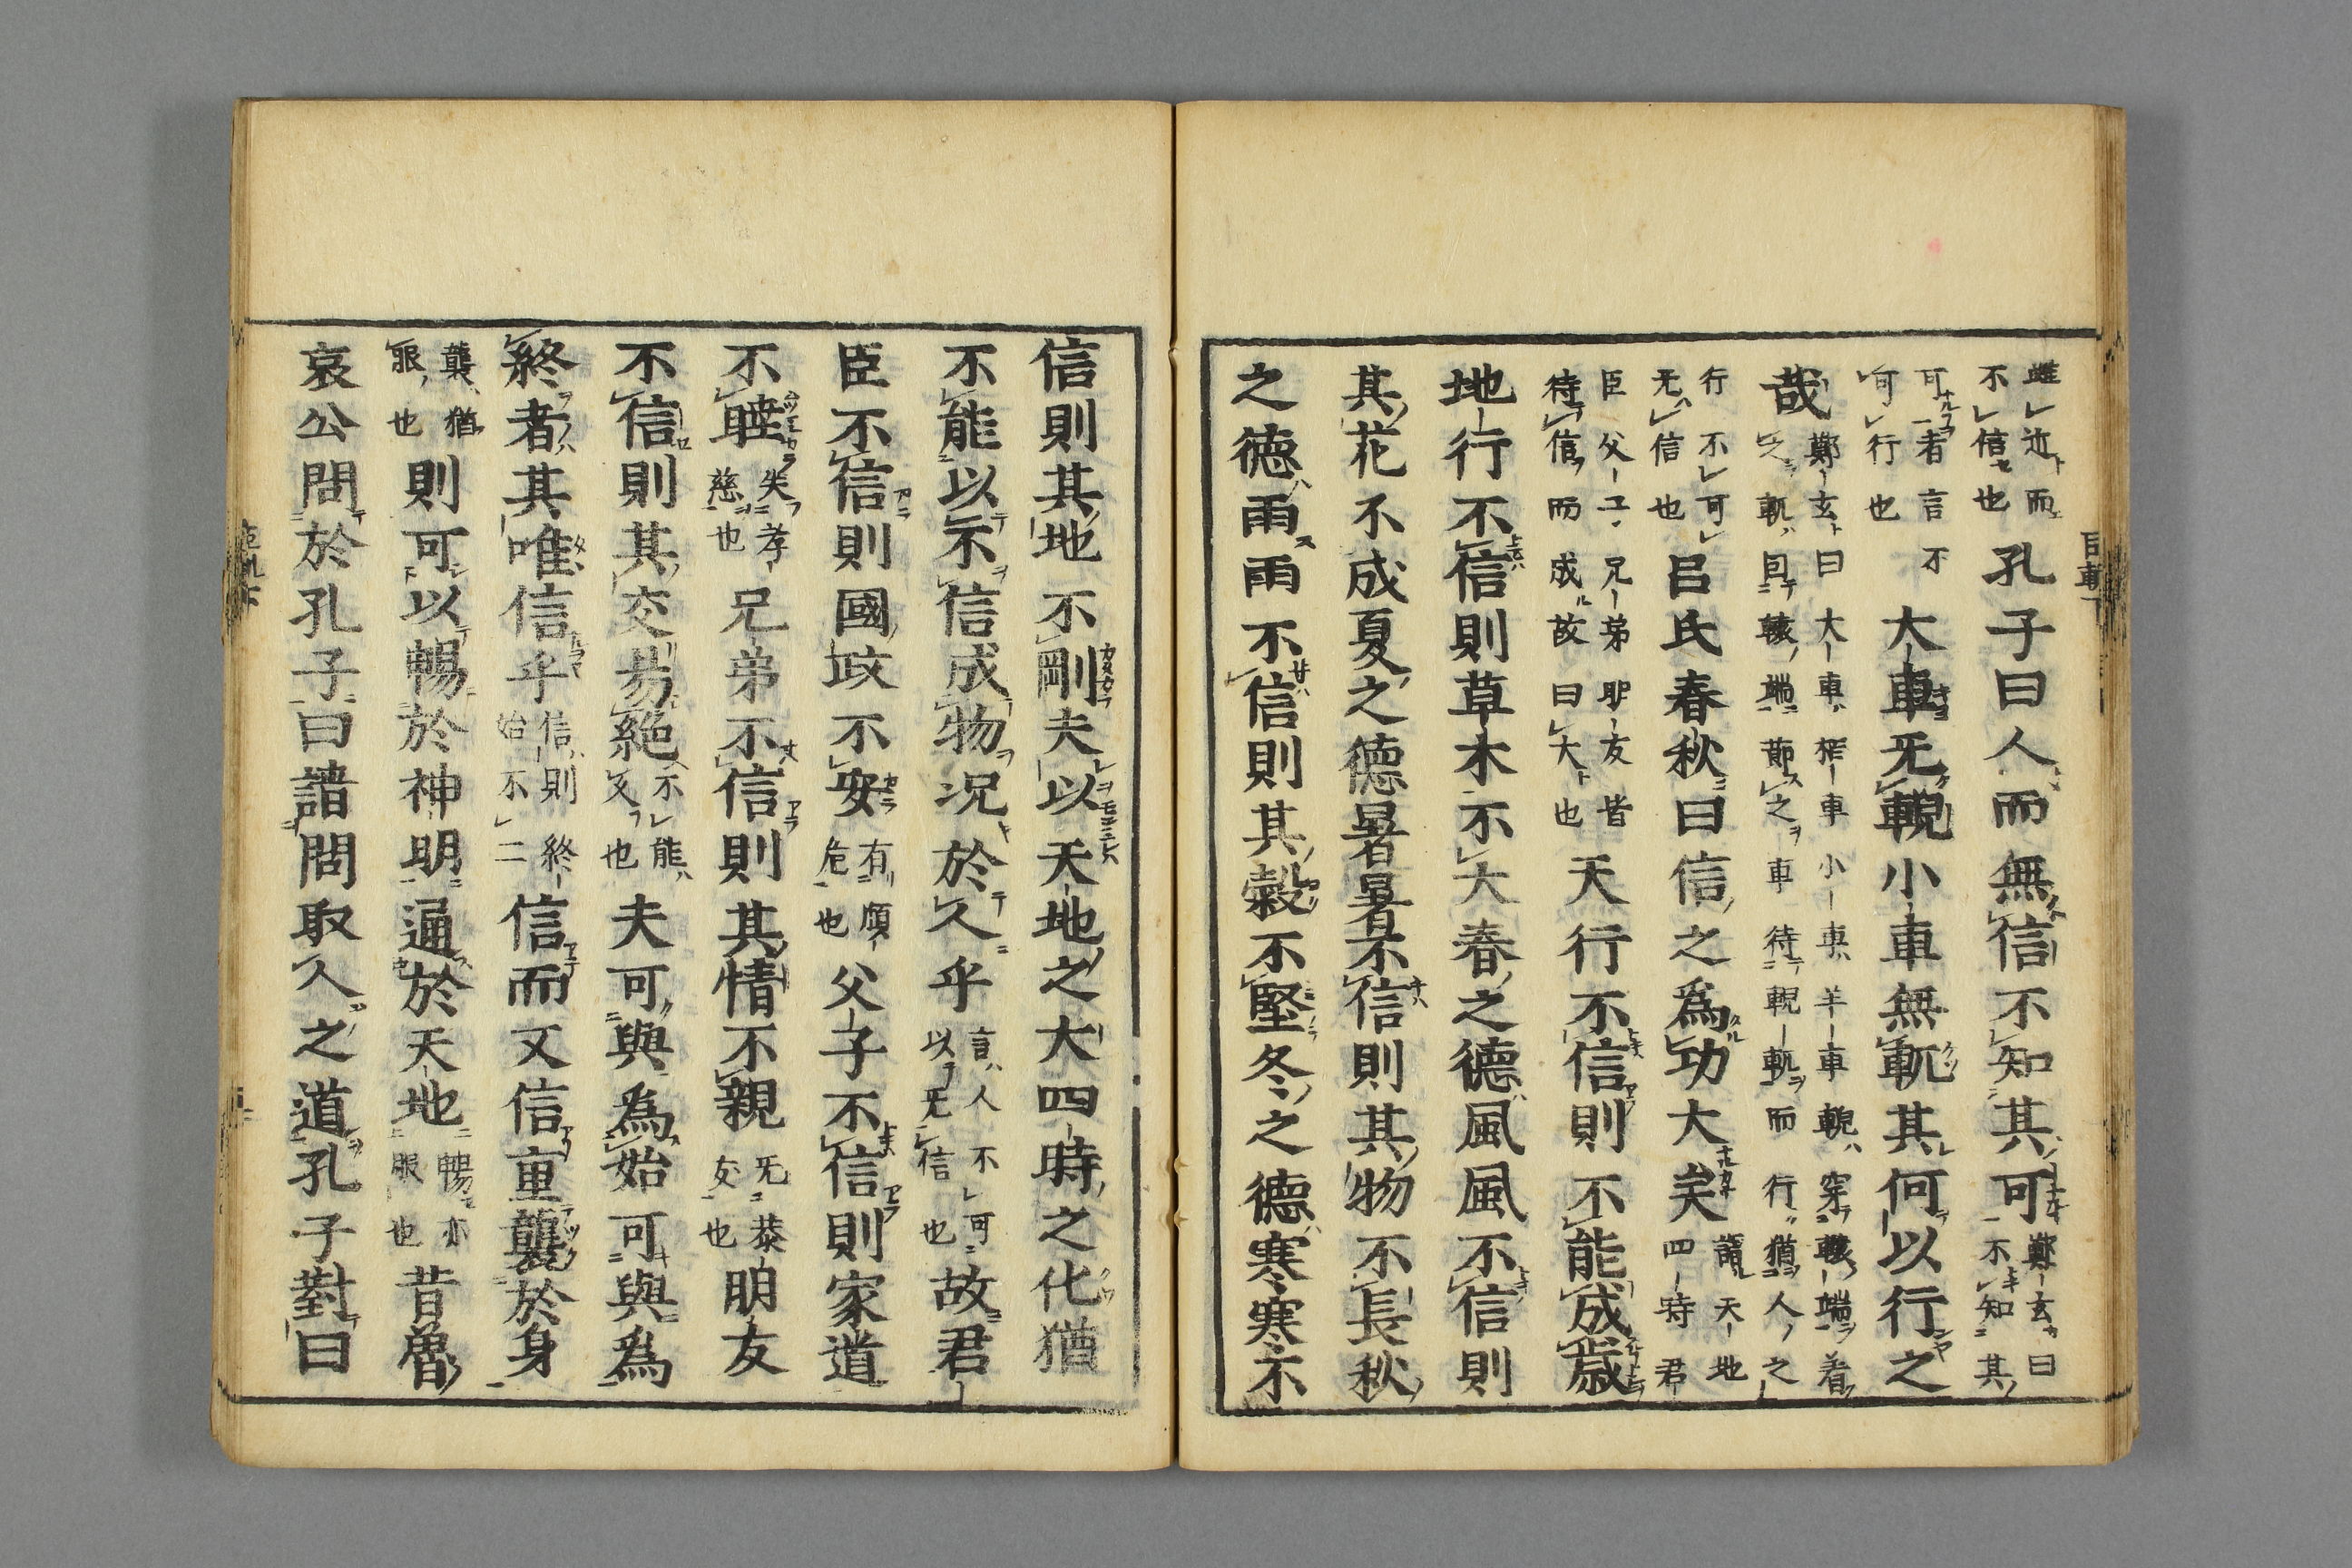 雖近而
不信也
孔子曰人而無信不知其可
鄭玄曰
不知其
可者言不
可行也
大車无輗小車無軏其何以行之
哉
鄭玄曰大車柞車小車羊車輗穿轅端着
之軏因轅端節之車待輗軏而行猶人之
行不可
无信也
呂氏春秋曰信之爲功大矣
謂天地
四時君
臣父子兄弟朋友皆
待信而成故曰大也
天行不信則不能成歲
地行不信則草木不大春之德風風不信則
其花不成夏之德暑暑不信則其物不長秋
之德雨雨不信則其穀不堅冬之德寒寒不
信則其地不剛夫以天地之大四時之化猶
不能以不信成物况於人乎
言人不可
以无信也
故君
臣不信則國政不安
有傾
危也
父子不信則家道
不睦
失孝
慈也
兄弟不信則其情不親
无恭
友也
朋友
不信則其交易絶
不能
久也
夫可與爲始可與爲
終者其唯信乎
信則終
始不二
信而又信重襲於身
襲猶
服也
則可以暢於神明通於天地
暢亦
服也
昔魯
哀公問於孔子曰請問取人之道孔子對曰